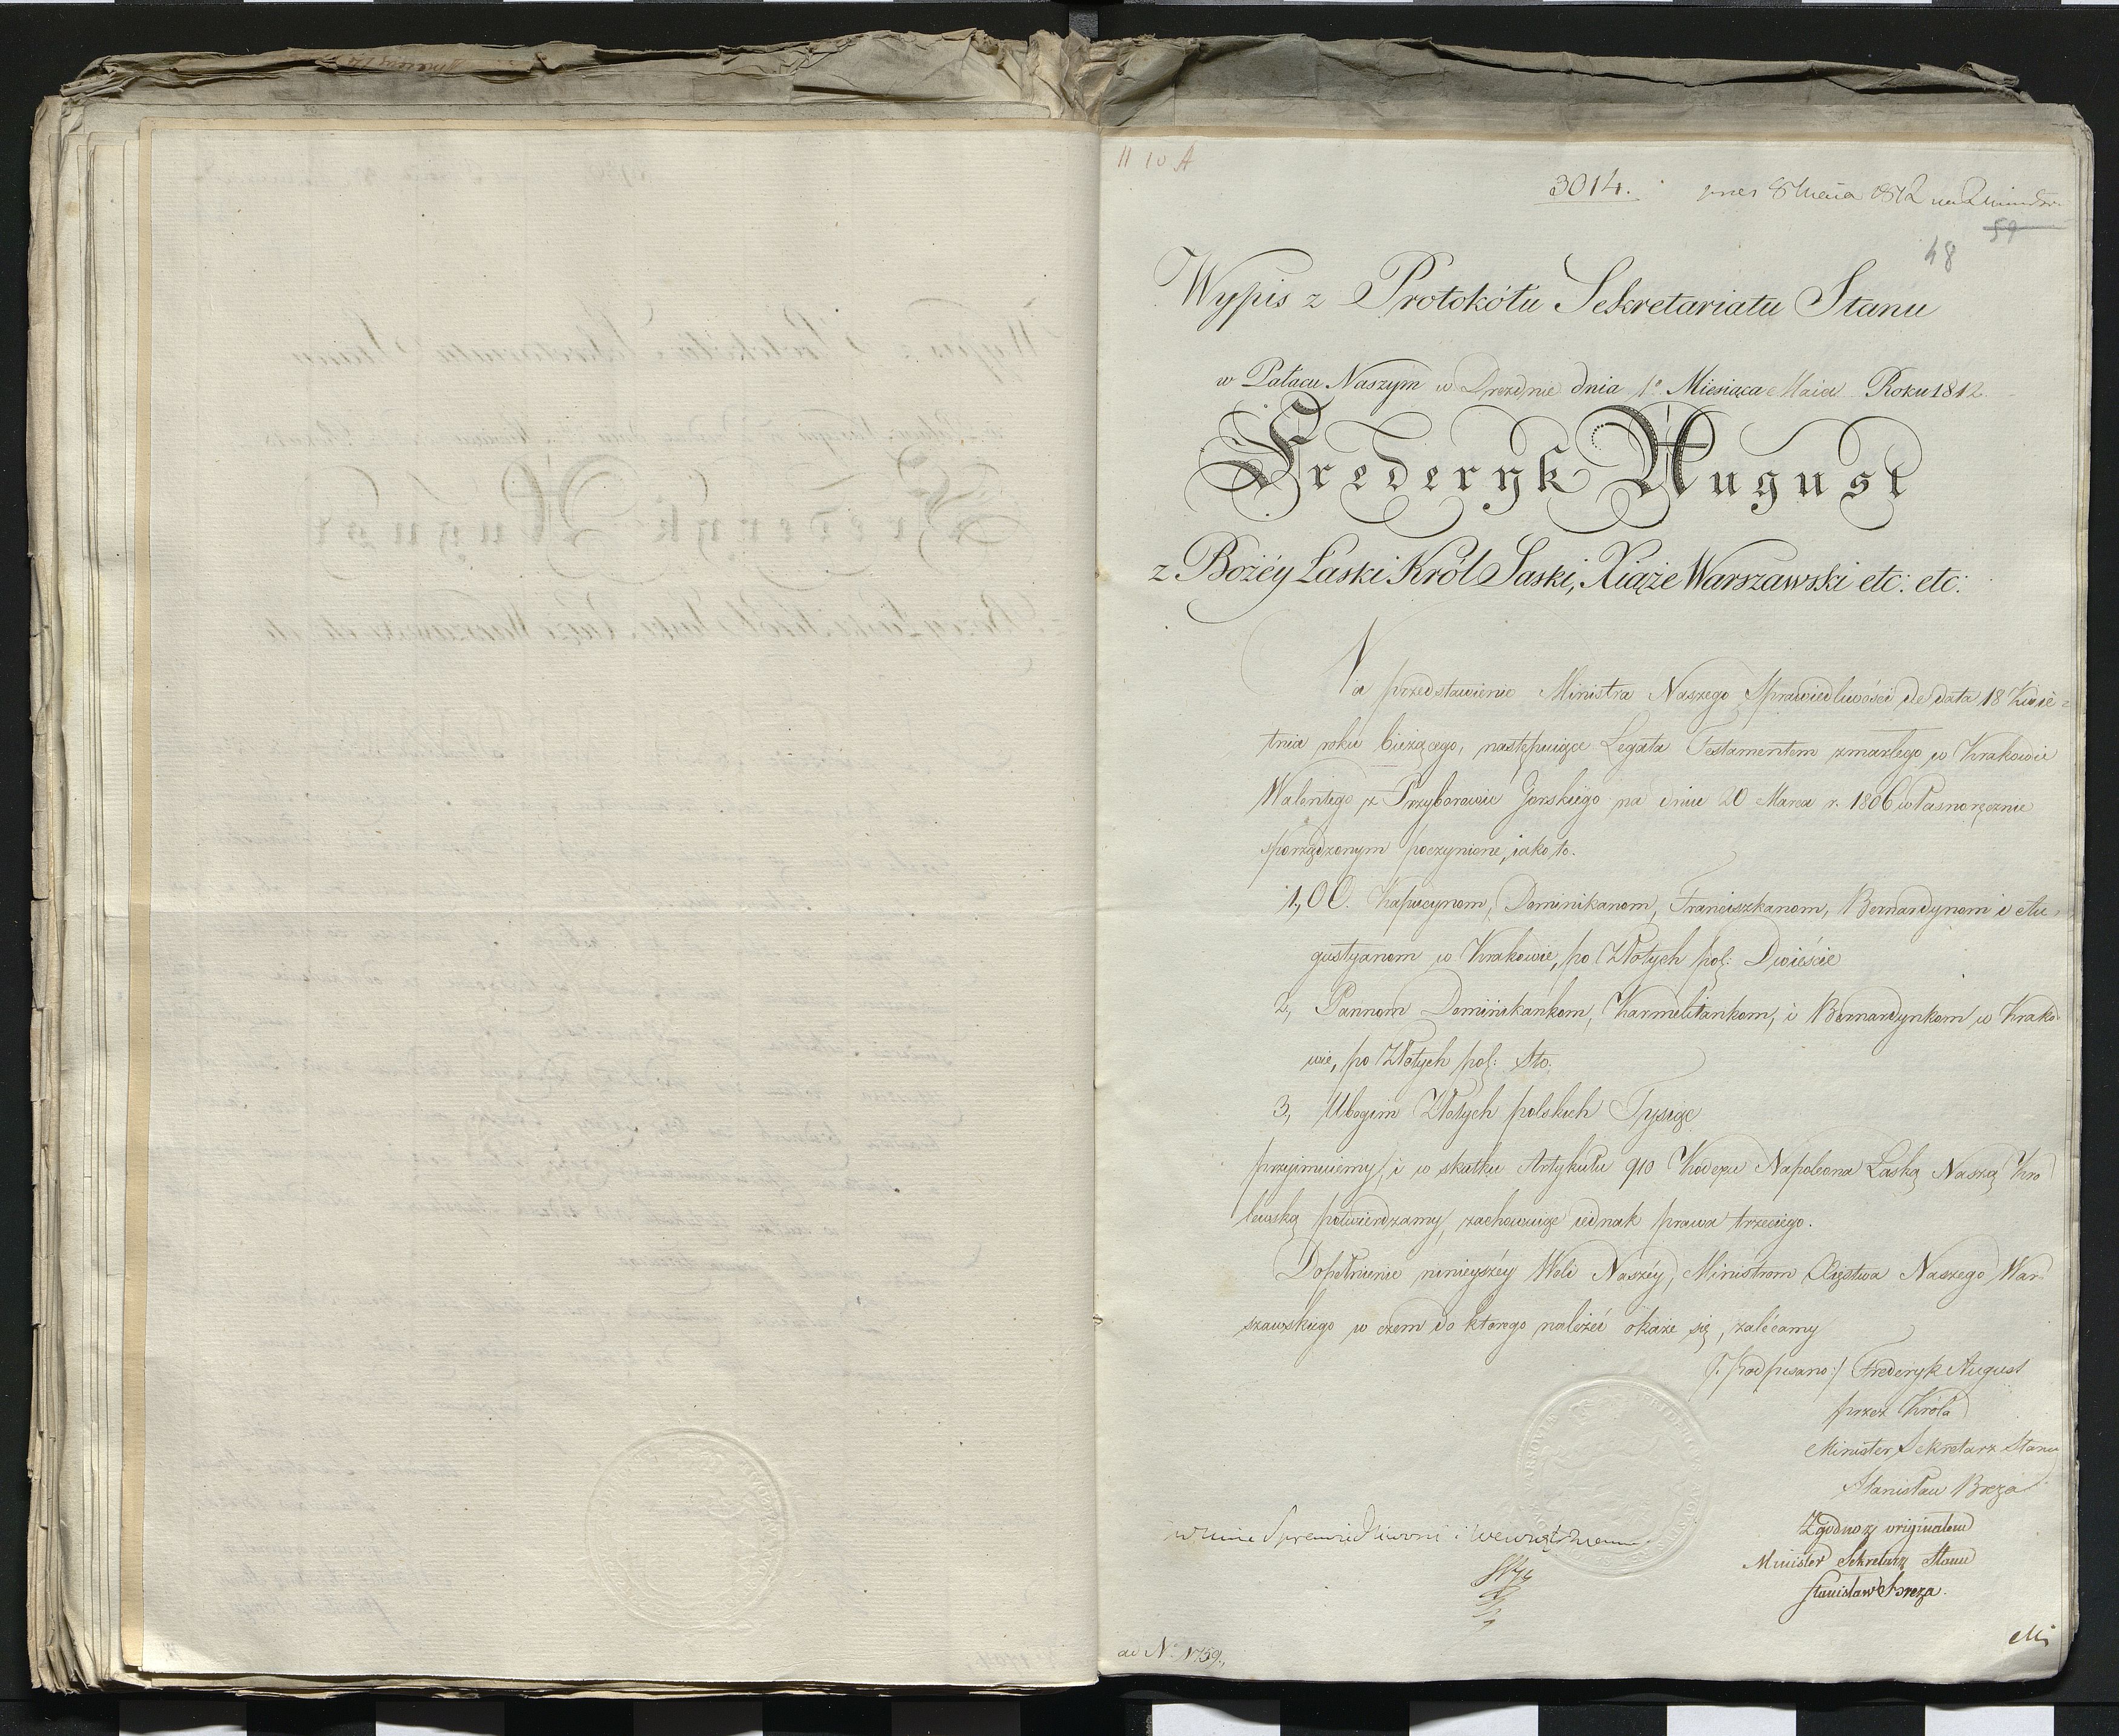 II 10 A
3014.
pres 8 Maia 1812
59
48
Wypis z Protokółu Sekretariatu Stanu
w Pałacu Naszym w Dreźnie dnia 1º Miesiąca Maia Roku 1812.
Frederyk August
z Bożéy Łaski Król Saski, Xiąże Warszawski etc: etc:
Na przedstawienie Ministra Naszego Sprawiedliwości de data 18 Kwie-
tnia roku bieżącego, następuiące Legata Testamentem zmarłego w Krakowie
Walentego z Przyborowia Gorskiégo na dniu 20 Marca r. 1806 własnoręcznie
sporządzonym poczynione, iako to.
1, OO. Kapucynom, Dominikanom, Franciszkanom, Bernardynom i Au-
gustyanom w Krakowie, po Złotych pol: Dwieście
2, Pannom Dominikankom, Karmelitankom, i Bernardynkom w Krako-
wie, po Złotych pol: Sto.
3, Ubogim Złotych polskich Tysiąc
przyimuiemy, i w skutku Artykułu 910 Kodexu Napoleona Łaską Naszą Kró
lewską potwierdzamy, zachowuiąc iednak prawa trzeciego.
Dopełnienie ninieyszéy Woli Naszéy, Ministrom Xięstwa Naszego War-
szawskiego w czem do ktorego należéć okaże się, zalécamy
/: Podpisano :/ Frederyk August
przez Króla
Minister Sekretarz Stanu
Stanisław Breza
Zgodno z originałem
Minister Sekretarz Stanu
Stanisław Breza.
ad Nº 1759.